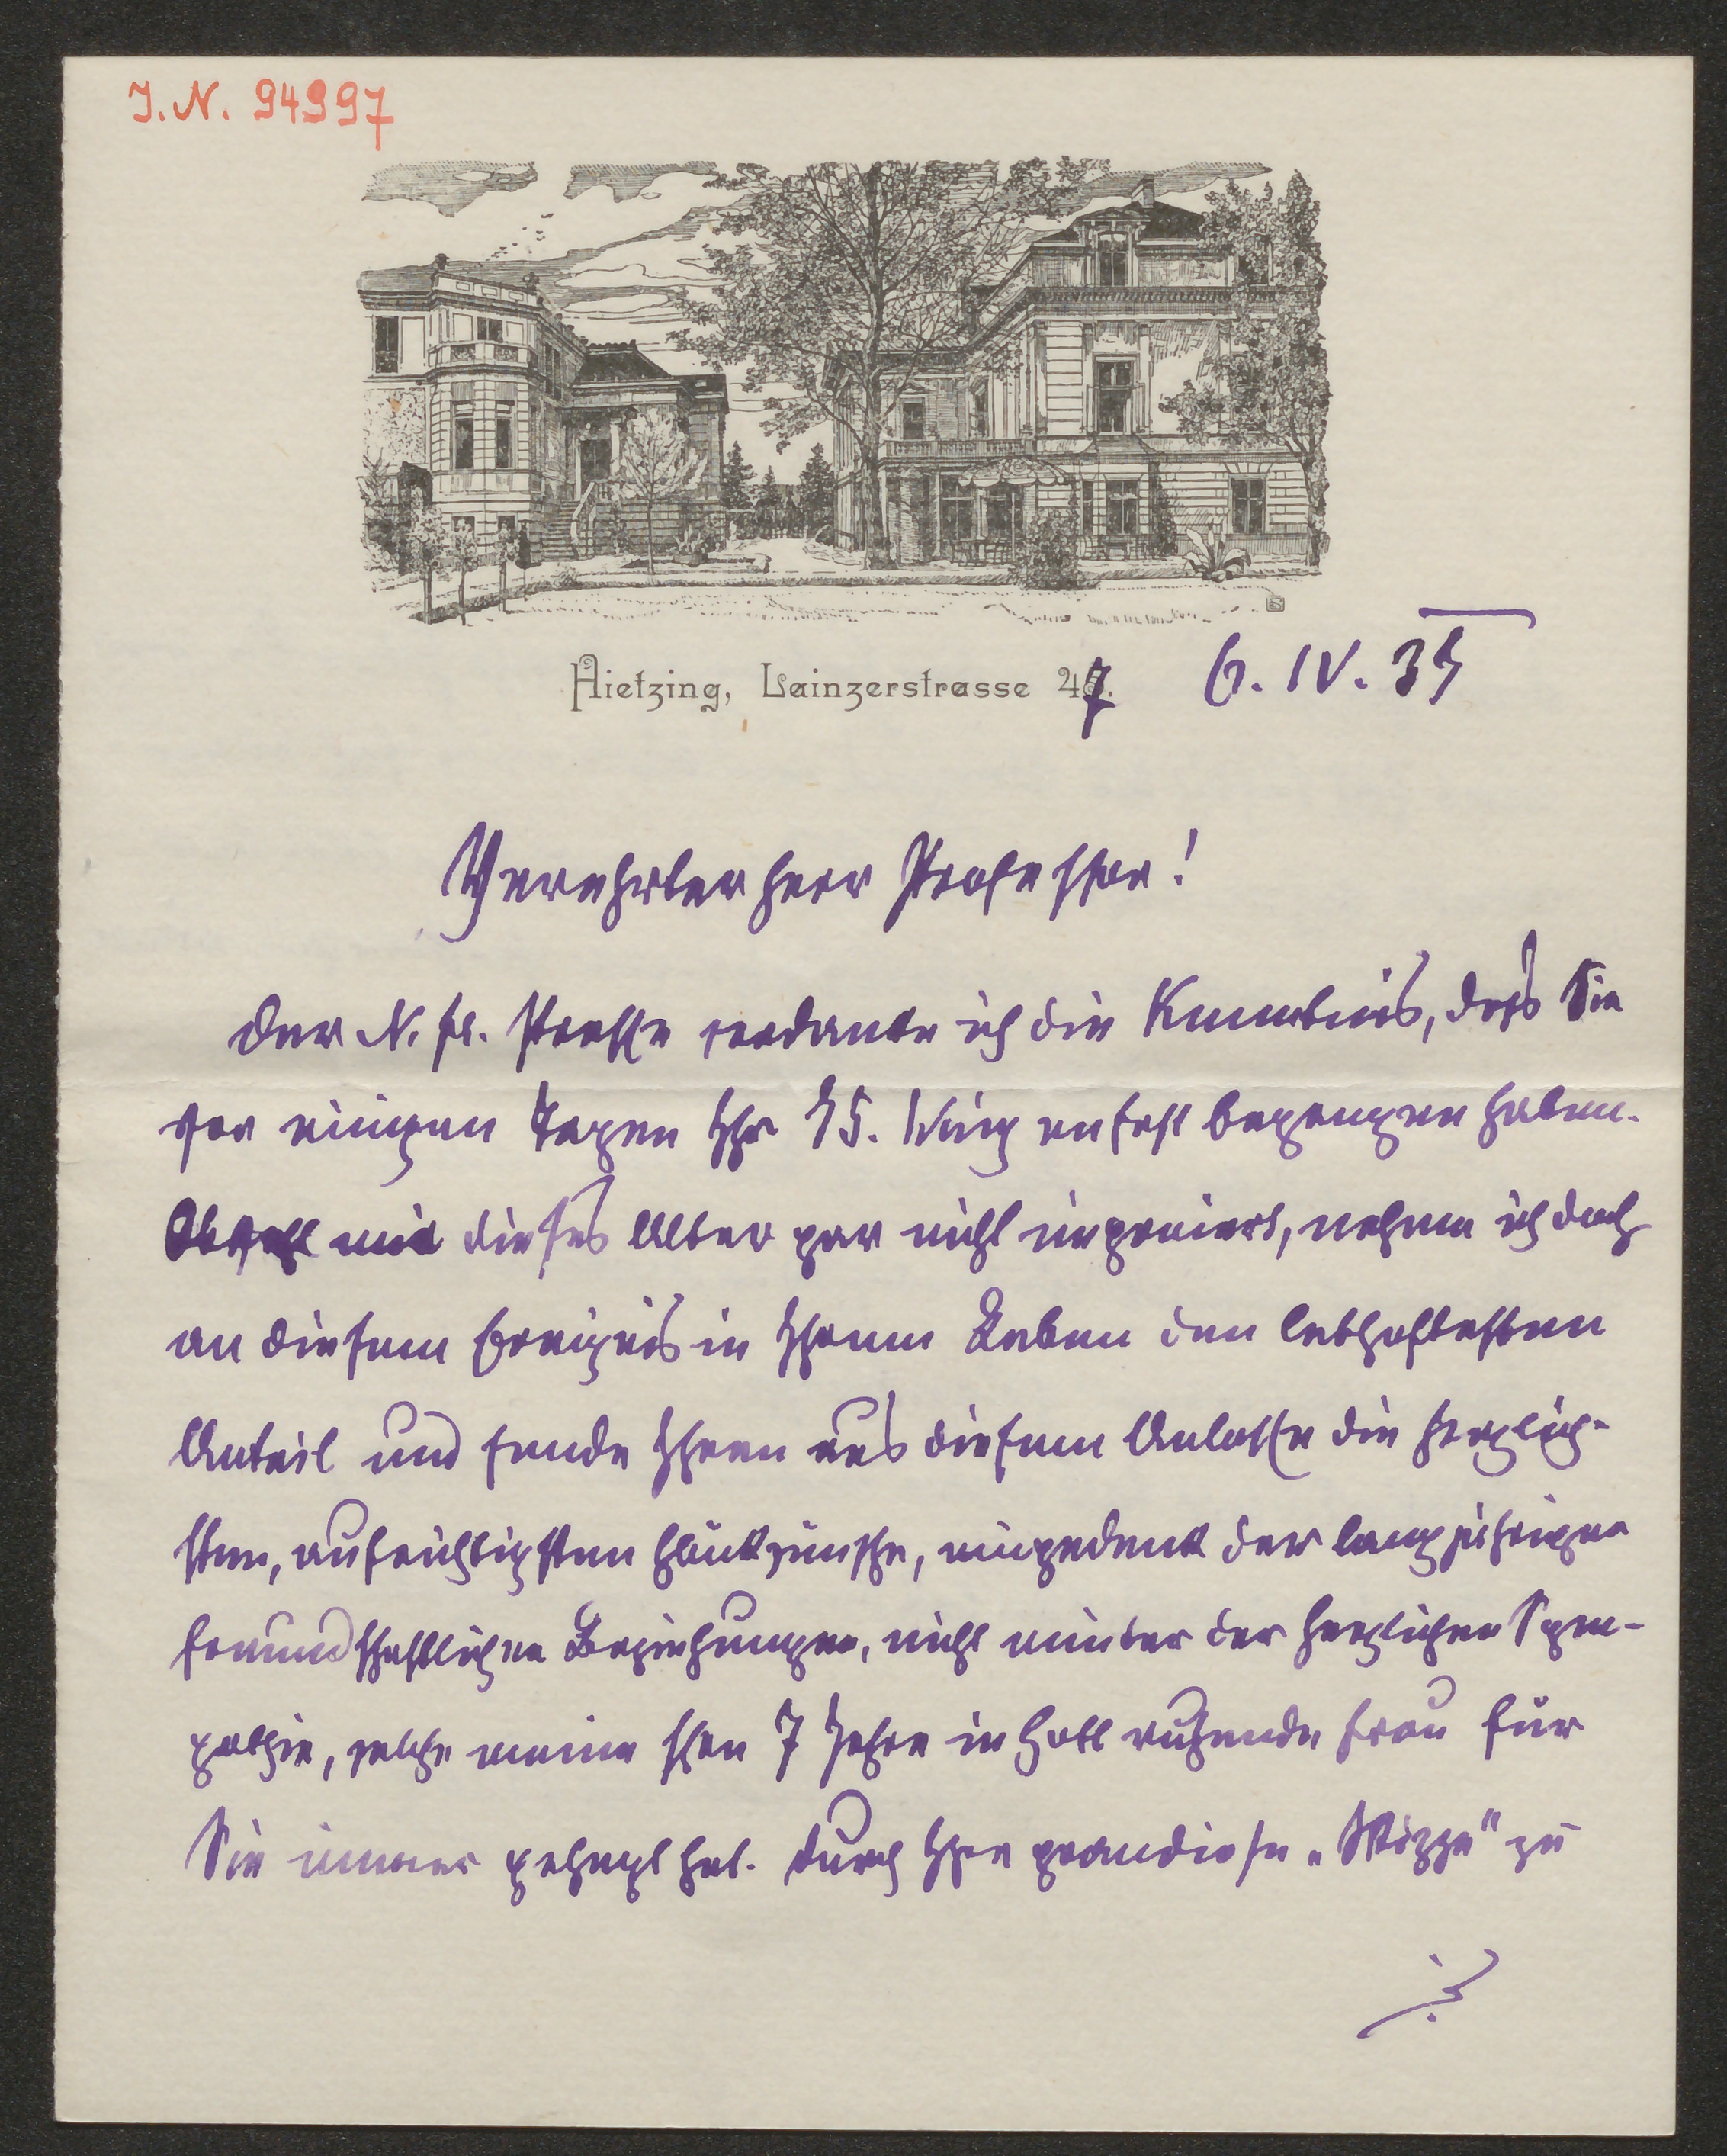 I. N. 94997
Hietzing, Lainzerstrasse 47. 6. IV. 35
Verehrter Herr Professor!
Der N. fr. Presse verdanke ich die Kenntnis, dass Sie
vor einigen Tagen Ihr 75. Wiegenfest begangen haben.
Obwohl mir dieses Alter gar nicht imponiert, nehme ich doch
an diesem Ereignis in Ihrem Leben den lebhaftesten
Anteil und sende Ihnen aus diesem Anlasse die herzlich-
sten, aufrichtigsten Glückwünsche, eingedenk der langjährigen
freundschaftlichen Beziehungen, nicht minder der herzlichen Sym-
pathie, welche meine schon 7 Jahre in Gott ruhende Frau für
Sie immer gehegt hat. Durch Ihre grandiose „Skizze" zu